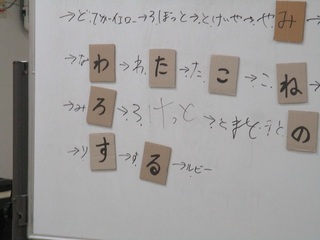 →ど.てか→イエロー→ろぼっと→とけいや→や み
→な わ →わ.た →た. こ →こ. ね →
→み ろ →ろけっと→とまとうと の
→り す →す. る →ルビー